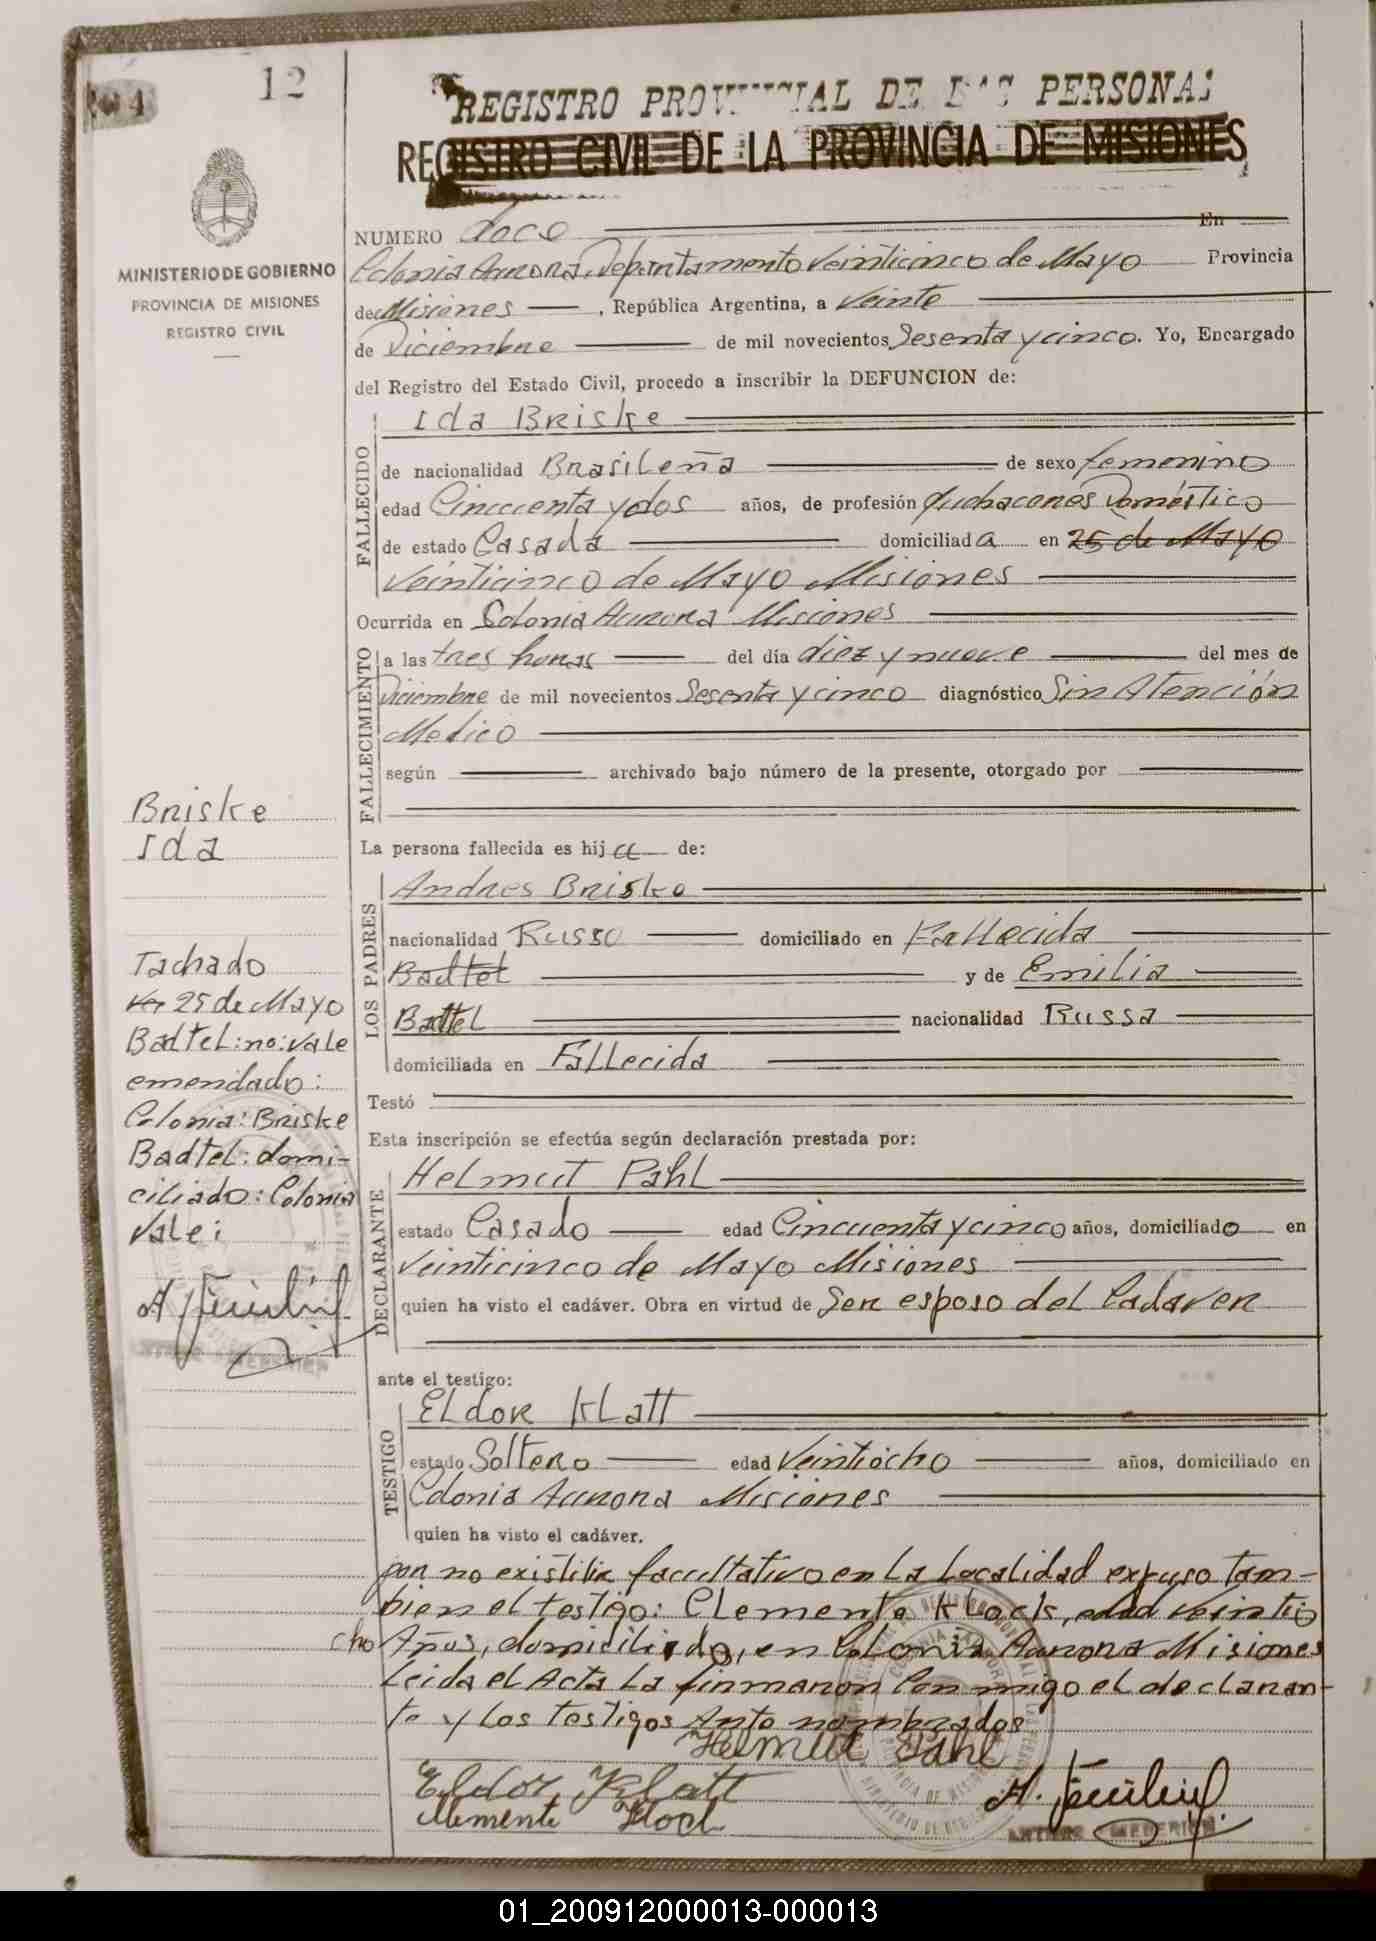 12
MINISTERIO DE GOBIERNO
PROVINCIA DE MISIONES
REGISTRO CIVIL
Briske
Ida
Tachado
25 de Mayo
Badtel: no: vale
emendado:
Colonia: Briske
Badtel: domi-
ciliado: Colonia
Vale:
REGISTRO PROVINCIAL DE LAS PERSONAS
REGISTRO CIVIL DE LA PROVINCIA DE MISIONES
NUMERO doce En
Colonia Aurora, Departamento Veinticinco de Mayo Provincia
de Misiones , República Argentina, a Veinte
de Diciembre de mil novecientos Sesenta y cinco. Yo, Encargado
del Registro del Estado Civil, procedo a inscribir la DEFUNCION de:
FALLECIDO
Ida Briske
de nacionalidad Brasileña de sexo femenino
edad Cincuenta y dos años, de profesión Quehaceres Doméstico
de estado Casada domiciliada en 25 de Mayo
Veinticinco de Mayo Misiones
FALLECIMIENTO
Ocurrida en Colonia Aurora Misiones
a las tres horas del día diez y nueve del mes de
Diciembre de mil novecientos Sesenta y cinco diagnóstico Sin Atención
Medico
según archivado bajo número de la presente, otorgado por
La persona fallecida es hija de:
LOS PADRES
Andres Briske
nacionalidad Russo domiciliado en Fallecida
Badtel y de Emilia
Badtel nacionalidad Russa
domiciliada en Fallecida
Testó
Esta inscripción se efectúa según declaración prestada por:
DECLARANTE
Helmut Pahl
estado Casado edad Cincuenta y cinco años, domiciliado en
Veinticinco de Mayo Misiones
quien ha visto el cadáver. Obra en virtud de Ser esposo del Cadaver
ante el testigo:
TESTIGO
Eldor Klatt
estado Soltero edad Veintiocho años, domiciliado en
Colonia Aurora Misiones
quien ha visto el cadáver.
por no existir facultativo en La Localidad expuso tam-
bien el testigo: Clemente Klock, edad veintio
cho Años, domiciliado, en Colonia Aurora Misiones
Leida el Acta La firmaron Conmigo el declaran-
te y Los testigos Ante nombrados
Helmut Pahl
Eldor Klatt
Clemente Klock
01_200912000013-000013